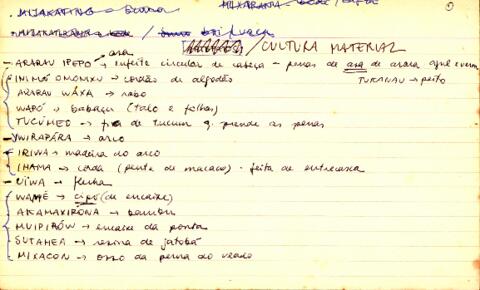 - MIJAKATING → 
MIXARANA →
/ CULTURA MATERIAL
ara
- ARARAU IPEPO → enfeite circular de cabeça - penas de asa de arara azul e verm
INIMÓ OMOMXU → cordão de algodões TUKANAU → peito
ARARAU WAXA → rabo
WAPÓ → babaçu (talo e folhas)
TUCÚMEO → fio de tucum q. prende as penas
- YWIRAPÁRA → arco
IRIWA → madeira do arco
IHAMA → corda (pente de macaco) - feita de entrecasca
- UÍWA → flecha
WAMÉ → cipó (de encaixe)
AKAMAXIRONA → bambu
MUIPIRÓW → encaixe da ponta
SUTAHEA → resina de jatobá
MIXACON → osso da perna do veado